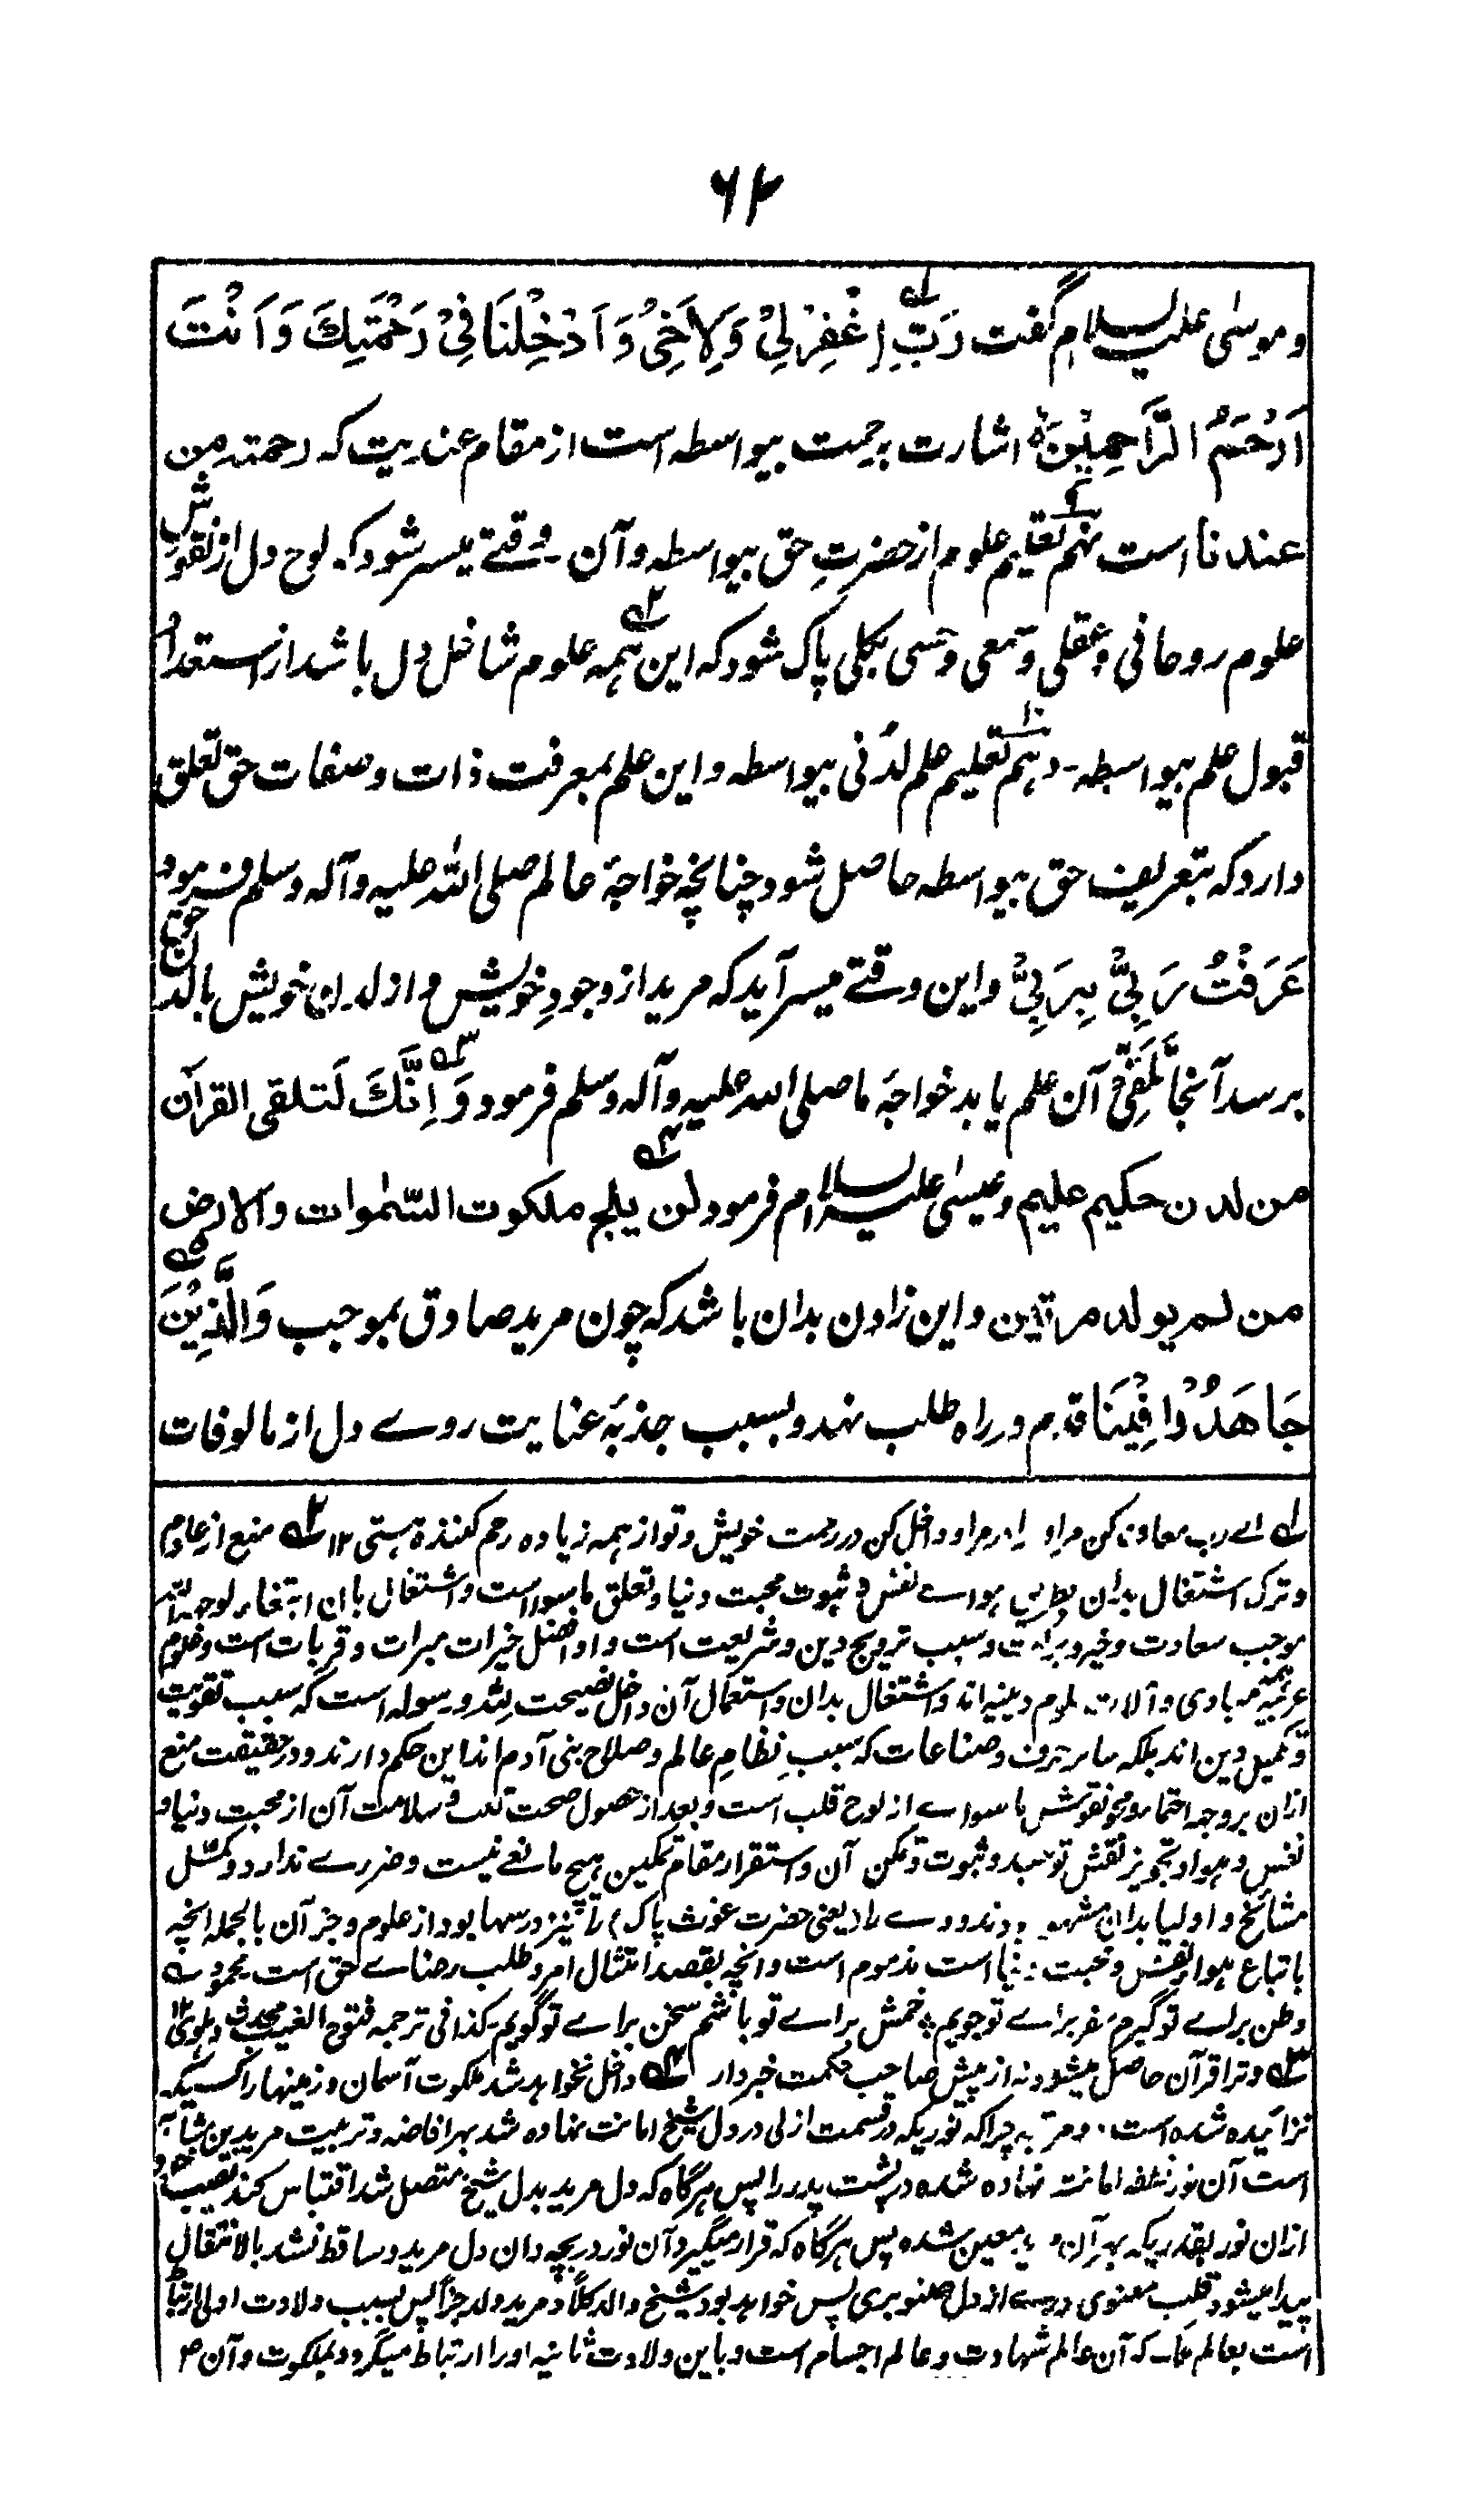 ۶۴
و موسیٰ علیہ السلام گفت رَبِّ اِغْفِرْ لِیْ وَ لِاَخِیْ وَ اَدْخِلْنَا فِیْ رَحْمَتِکَ وَ اَنْتَ
اَرْحَمُ الرَّاحِمِیْنَ اشارت برحمت بیواسطہ است از مقام عندیت کہ رحمتہ من
عندنا است نہم تعلیم علوم از حضرتِ حق بیواسطہ و آن وقتے میسر شود کہ لوح دل از نقوش
علوم روحانی و عقلی و سمعی و حسی بکلی پاک شود کہ این ہمہ علوم شاغل دل باشد از استعداد
قبول علم بیواسطہ۔ دہم تعلیم علم لدُنی بیواسطہ و این علم بمعرفت ذات و صفات حق تعلق
دارد کہ بتعریف حق بیواسطہ حاصل شود چنانچہ خواجۂ عالم صلی اللہ علیہ وآلہ وسلم فرمود
عَرَفْتُ رَبِّیْ بِرَبِّیْ و این وقتے میسر آید کہ مرید از وجودِ خویش و از لدن خویش بالدن حق
برسد آنجا تَلَقِّی آن علم یابد خواجۂ ما صلی اللہ علیہ وآلہ وسلم فرمود وَ اِنَّکَ لَتلقی القرآن
من لدن حکیم علیم و عیسیٰ علیہ السلام فرمود لن یلج ملکوت السّمٰوات والارض
من لم یولد مرتین و این زادن بدان باشد کہ چون مرید صادق بموجب وَالَّذِیْنَ
جَاهَدُوْا فِیْنَا قدم در راہ طلب نہد و بسبب جذبۂ عنایت روے دل از مالوفات
لہ اے رب معاف کن مرا و برادر مرا و داخل کن در رحمت خویش و تو از ہمہ زیادہ رحم کنندہ ہستی ۱۲ ۲ہ منع از علوم
و ترک اشتغال بدان بطریق ہواے نفس و ثبوت محبت دنیا و تعلق ماسوا است و اشتغال بان ابتغاء لوجہ اللہ
موجب سعادت و خیر و برکت و سبب ترویج دین و شریعت است و او افضل خیرات مبرات و قربات است و علوم
عربیہ ہمہ مبادی و آلات علوم دینیہ اند و اشتغال بدان و استعمال آن داخل نصیحت للہ و رسولہ است کہ سبب تقویت
و تکمیل دین اند بلکہ سایر حرف و صناعات کہ سببِ نظامِ عالم و صلاح بنی آدم اند این حکم دارند و در حقیقت منع
ازان بروجہ اتمام و محو نقوش ماسواے از لوح قلب است و بعد از حصول صحت قلب و سلامت آن از محبت دنیا و
نفس و ہوا و تجویز نقش توحید و ثبوت و تمکن آن و استقرار مقام تمکین ہیچ مانعے نیست و ضررے ندارد و کمثل
مشائخ و اولیا بدان مشہور بودند و وے را (یعنی حضرت غوث پاک) را نیز درسہا بود از علوم و جز آن بالجملہ انچہ
باتباع ہوا و نفس و محبت دنیا است مذموم است و انچہ بقصد امتثال امر و طلب رضاے حق است محمود ے
وطن براے تو گیرم سفر براے تو جویم ؞ خمش براے تو باشم سخن براے تو گویم۔ کذا فی ترجمہ فتوح الغیب محدث دہلوی ۱۲
۳ہ و ترا قرآن حاصل میشود نہ از پیش صاحب حکمت خبردار ۴ہ داخل نخواہد شد ملکوت آسمان و زمینہا را کسیکہ
نزائیدہ شدہ است دو مرتبہ چرا کہ نوریکہ در قسمت ازلی در دل شیخ امانت نہادہ شد بہر افاضہ و تربیت مریدین مشابہ
است آن نور نطفہ امانت نہادہ شدہ در پشت پدر را پس ہرگاہ کہ دل مرید بدل شیخ متصل شد اقتباس کند نصیب خود
ازان نور بقدریکہ بہر آن مرید معین شدہ پس ہرگاہ کہ قرار میگیرد آن نور دریچہ دان دل مرید و ساقط نشد بالانتقال
پیدا میشود قلب معنوی دوسے از دل صنوبری پس خواہد بود شیخ والد کلاً و مرید ولد جزاً پس بسبب ولادت اولی ارتباط
است بعالم ملک کہ آن عالم شہادت و عالم اجسام است و باین ولادت ثانیہ او را ارتباط میگردد بملکوت و آن ۲